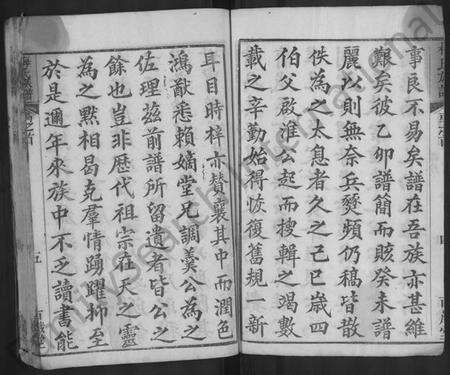 事良不易矣譜在吾族亦甚維
艱矣彼乙卯譜簡而賅癸未譜
麗以則無奈兵燹頻仍稿皆散
佚為之太息者久之己巳歲四
伯父啟淮公起而搜輯之竭數
載之辛勤始得恢復舊規一新
耳目時梓亦贊襄其中而潤色
鴻猷悉賴嫡堂兄調羹公為之
佐理茲前譜所留遺者皆公之
餘也豈非歷代祖宗在天之靈
為之黙相曷克羣情踴躍柳至
於是邇年來族中不乏讀書能
五
FamilySearch International